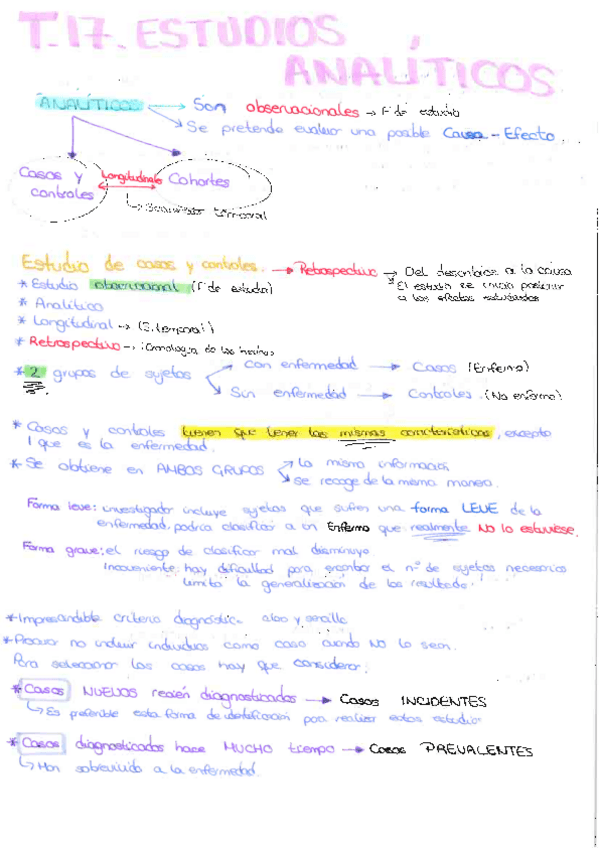 T.17. ESTUDIOS
ANALÍTICOS
ANALÍTICOS → Son observacionales → F de estudio
Se pretende evaluar una posible Causa - Efecto.
Casos y controles
Longitudinales
Cohortes
↳ temporal
Estudio de casos y controles. → Retrospectivo → Del desenlace a la causa
* El estudio se inicia posterior
a los efectos estudiados
* Estudio observacional (F de estudio)
* Analítico
* Longitudinal → (S. temporal)
* Retrospectivo → Cronología de los
* 2 grupos de sujetos
Con enfermedad → Casos (Enfermo)
Sin enfermedad → Controles (No enfermo)
* Casos y controles tienen que tener las mismas características, excepto
1 que es la enfermedad.
* Se obtiene en AMBOS GRUPOS
La misma información
se recoge de la misma manera.
Forma leve: investigador incluye sujetos que sufren una forma LEVE de la
enfermedad, podría clasificar a un Enfermo que realmente NO lo estuviese.
Forma grave: el riesgo de clasificar mal disminuye
Inconveniente: hay dificultad para encontrar el nº de sujetos necesarios
limita la generalización de los resultados.
* Imprescindible criterio diagnóstico claro y sencillo
* Procurar no incluir individuos como caso cuando NO lo sean.
Para seleccionar los casos hay que considerar:
* Casos NUEVOS recién diagnosticados → Casos INCIDENTES
↳ Es preferible esta forma de identificación para realizar estos estudios
* Casos diagnosticados hace MUCHO tiempo → Casos PREVALENTES
↳ Han sobrevivido a la enfermedad.